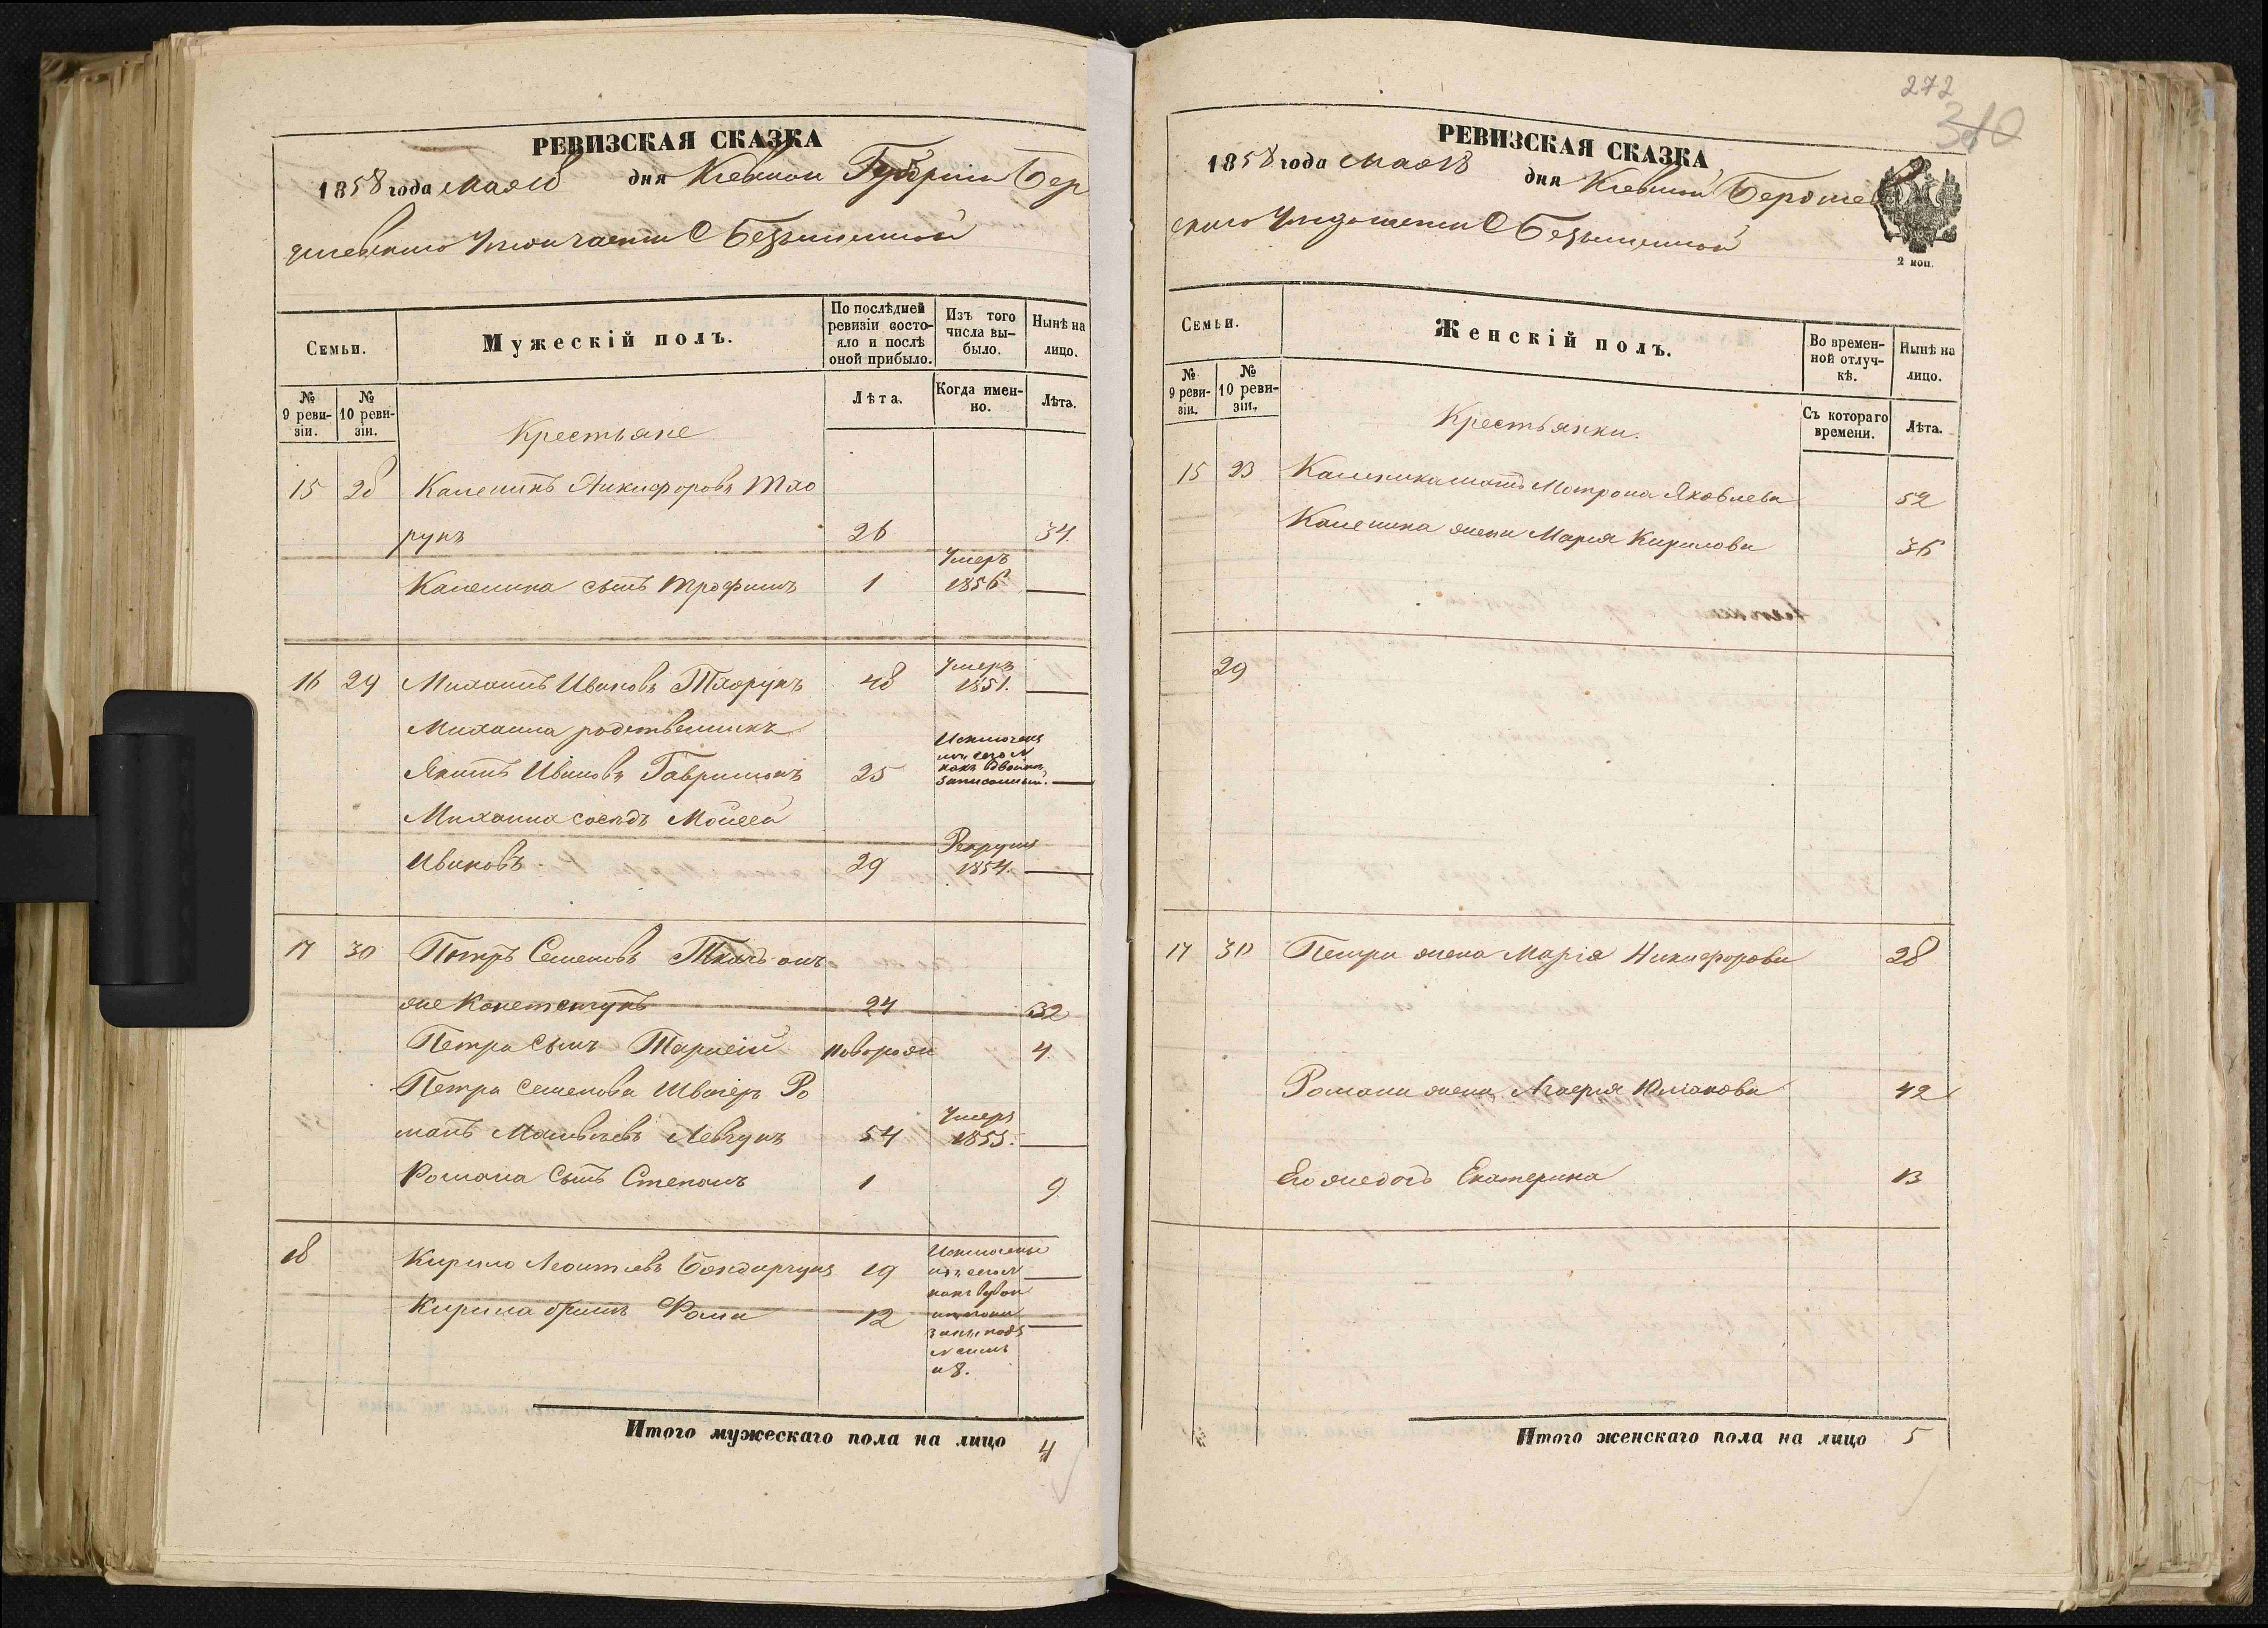 РЕВИЗСКАЯ СКАЗКА
1858 года мая 18 дня Киевской Губернiи Бер
дичевского Уезда С Безымянной
Семьи.
Мужескiй полъ.
По послѣдней ревизiи состо-
яло и послѣ
оной прибыло.
Изъ того
числа вы-
было.
Нынѣ на
лицо.
№
9 реви-
зiи.
№
10 реви-
зiи.
Лѣта.
Когда имен-
но.
Лѣта.
Крестьяне
15 28 Каленикъ Никифоровъ Тхо
рукъ 26 34.
Каленика сынъ Трофимъ 1 Умеръ 1856
16 29 Михаилъ Ивановъ Тхорукъ 48 Умеръ 1851.
Михаила родственникъ
Якимъ Ивановъ Гаврилюкъ 25 Исключенъ
изъ сего №
какъ двойно
записанный.
Михаила соседъ Мойсей
Ивановъ 29 Рекрутъ 1854.
17 30 Петръ Семеновъ онъ
же 24 32
Петра сынъ Тарасiй новорож 4
Петра Семенова Швагеръ Ро
манъ Левчукъ 54 Умеръ 1855.
Романа Сынъ Степанъ 1 9
18 Кирило Леонтiевъ Бондарчукъ 19 Исключены
изъ сего №
какъ
Кирила братъ Фома 12
запис подъ
№ симъ
и 8.
Итого мужескаго пола на лицо 4
272
310
РЕВИЗСКАЯ СКАЗКА
1858 года мая 18 дня Киевской Бердичев
ского С Безымянной
2 коп.
Семьи.
Женскiй полъ.
Во времен-
ной отлуч-
кѣ.
Нынѣ на
лицо.
№
9 реви-
зiи.
№
10 реви-
зiи.
Съ котораго
времени.
Лѣта.
Крестьянки.
15 23 Каленика мать Мотрона Яковлева 52
Каленика жена Марiя Кирилова 36
29
17 30 Петра жена Марiя Никифорова 28
Романа жена Агафiя Юлiанова 42
Его же дочь Екатерина 13
Итого женскаго пола на лицо 5